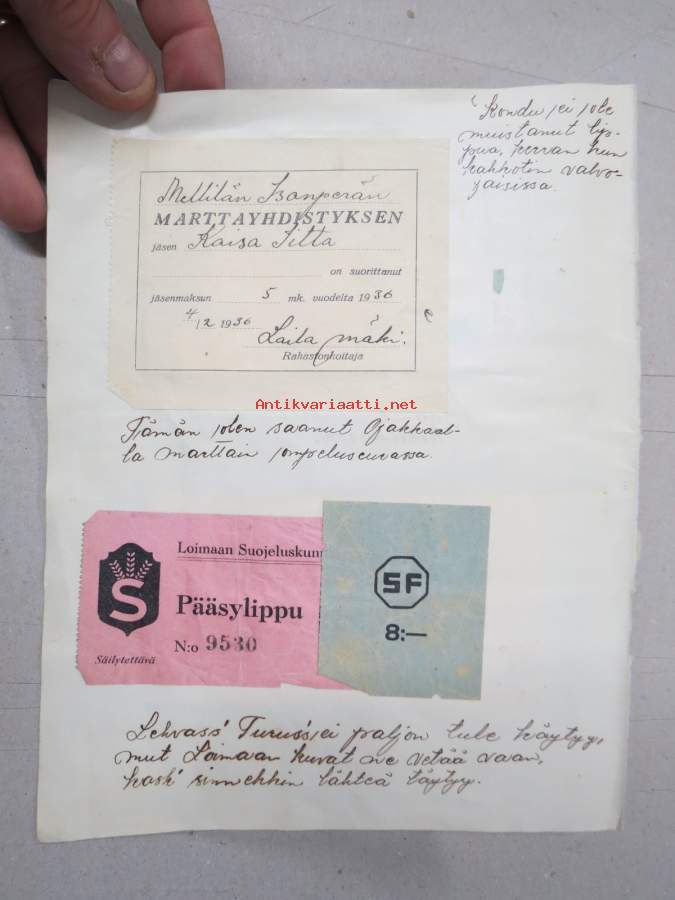 Kondu ei ole
muistanut lip-
pua, kerran kun
kahkotin valvo-
jaisissa.
Mellilän Isonperän
MARTTAYHDISTYKSEN
jäsen Kaisa Iitta
on suorittanut
jäsenmaksun 5 mk. vuodelta 1936
4/2 1936
Laila Mäki.
Rahastonhoitaja
Antikvariaatti.net
Tämän olen saanut Ojakkaal-
la marttain ompeluseurassa.
Loimaan Suojeluskun
S
Pääsylippu
N:o 9530
Säilytettävä
SF
8:—
Turus ei paljon tule käytyy,
mut Loimaan kuvat ne vetää vaan,
kosk' sinnekkin lähteä täytyy.